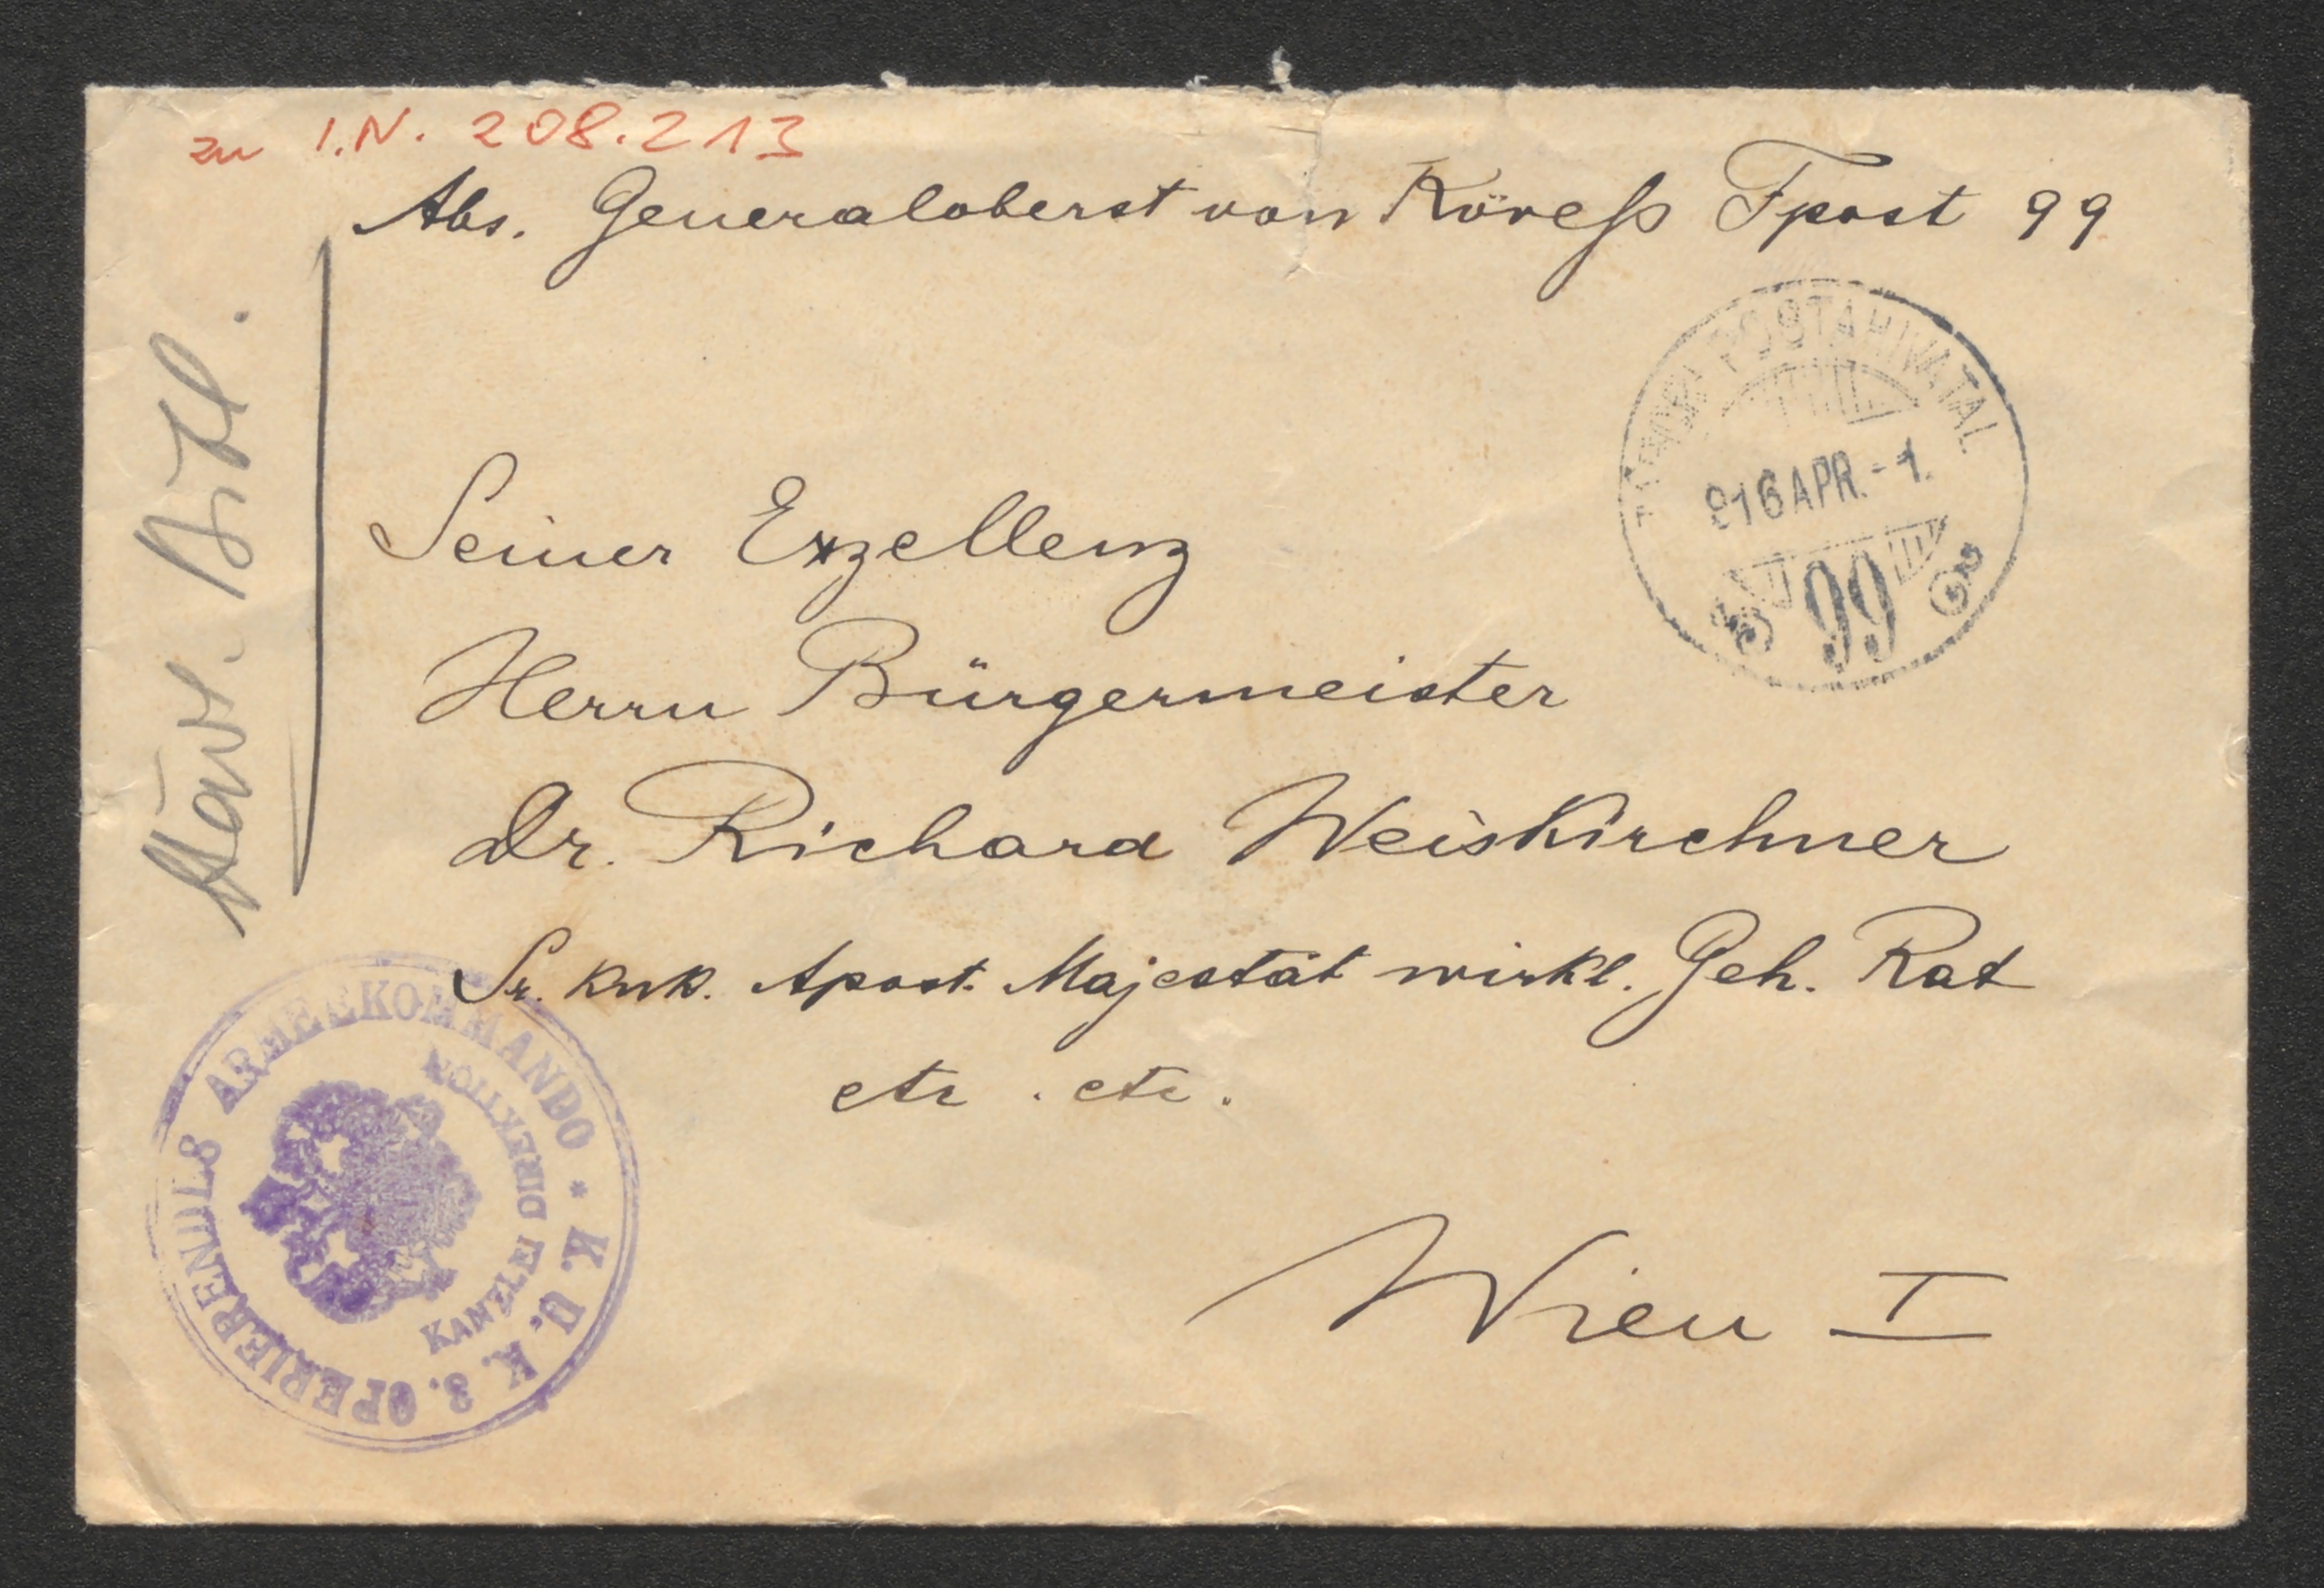 zu I.N. 208.213
Abs. Generaloberst von Kövess Fpost 99
TÁBORI POSTAHIVATAL
916 APR. - 1.
99
Seiner Exzellenz
Herrn Bürgermeister
Dr. Richard Weiskirchner
Sr. kuk. Apost. Majestät wirkl. Geh. Rat
etc. etc.
Wien I
K. U. K. 3. OPERIERENDES ARMEEKOMMANDO *
KANZLEI DIREKTION